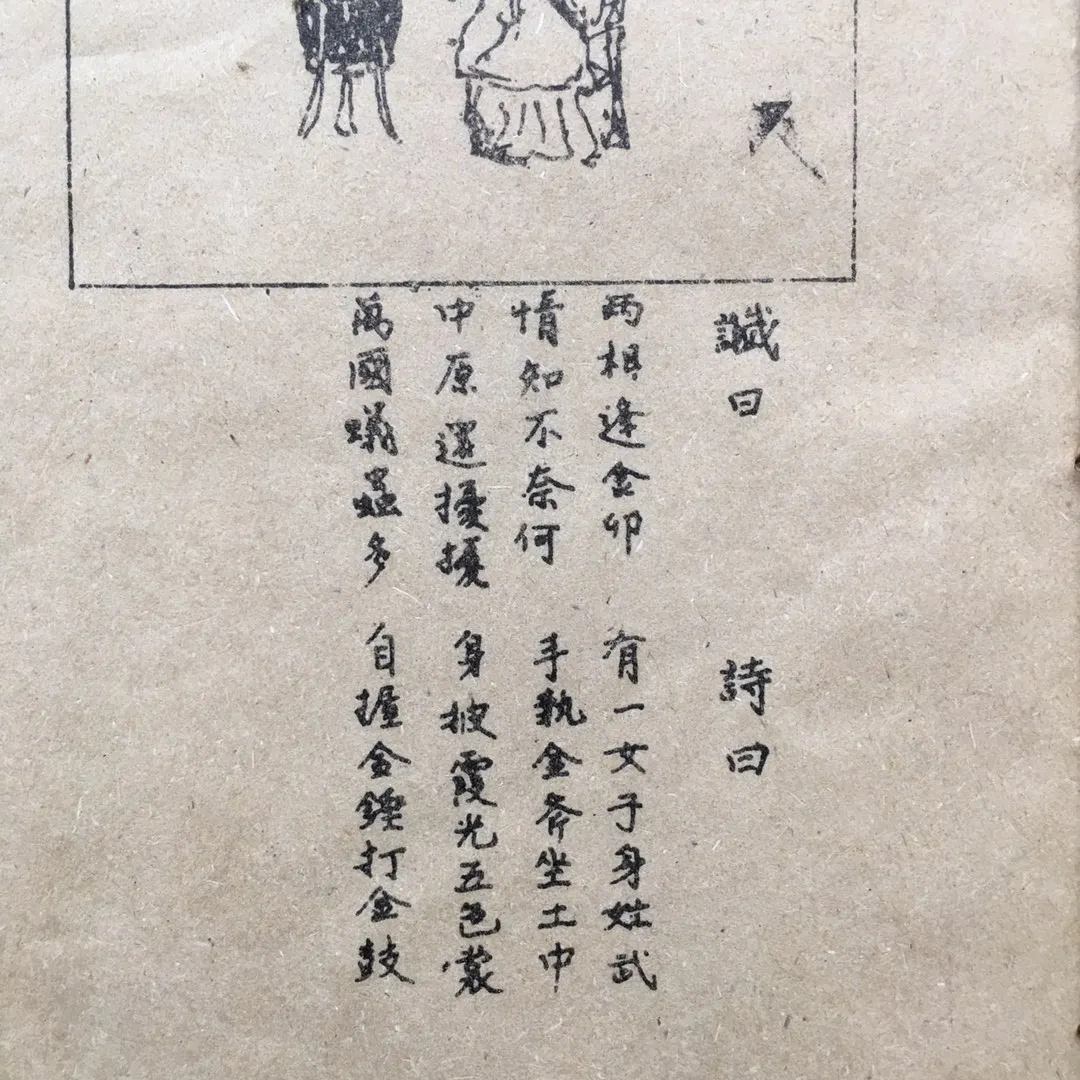 讖曰
兩相逢金卯
情知不奈何
中原還擾擾
萬國蟻蟲多
詩曰
有一女子身姓武
手執金斧坐土中
身披霞光五色裳
自握金錘打金鼓